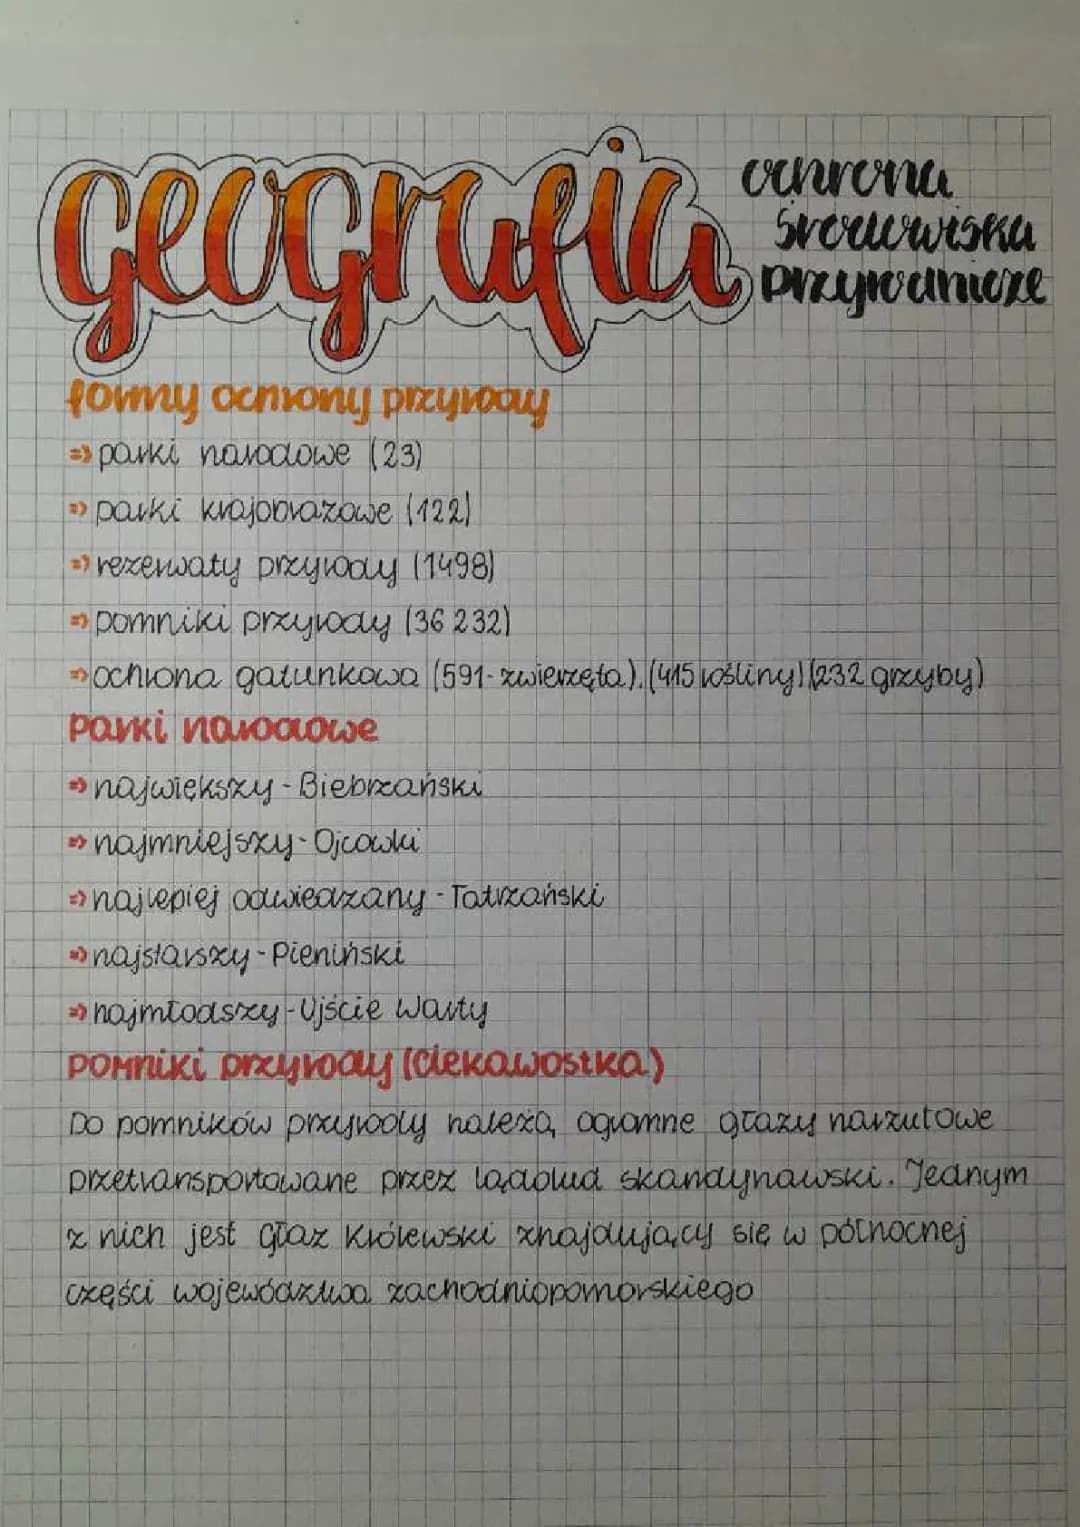 geografia
ochrona
środowiska
przyrodnicze
formy ochrony przyrody
⇒ parki narodowe (23)
⇒ parki krajobrazowe (122)
⇒ rezerwaty przyrody (1498)
⇒ pomniki przyrody (36 232)
⇒ ochrona gatunkowa (591- zwierzęta), (415 rośliny) (232 grzyby)
parki narodowe
⇒ największy - Biebrzański
⇒ najmniejszy - Ojcowki
⇒ najlepiej odwiedzany - Tatrzański
⇒ najstarszy - Pieniński
⇒ najmłodszy - Ujście Warty
pomniki przyrody (ciekawostka)
Do pomników przyrody należą ogromne głazy narzutowe
przetransportowane przez lądolud skandynawski. Jednym
z nich jest Głaz Królewski znajdujący się w północnej
części województwa zachodniopomorskiego